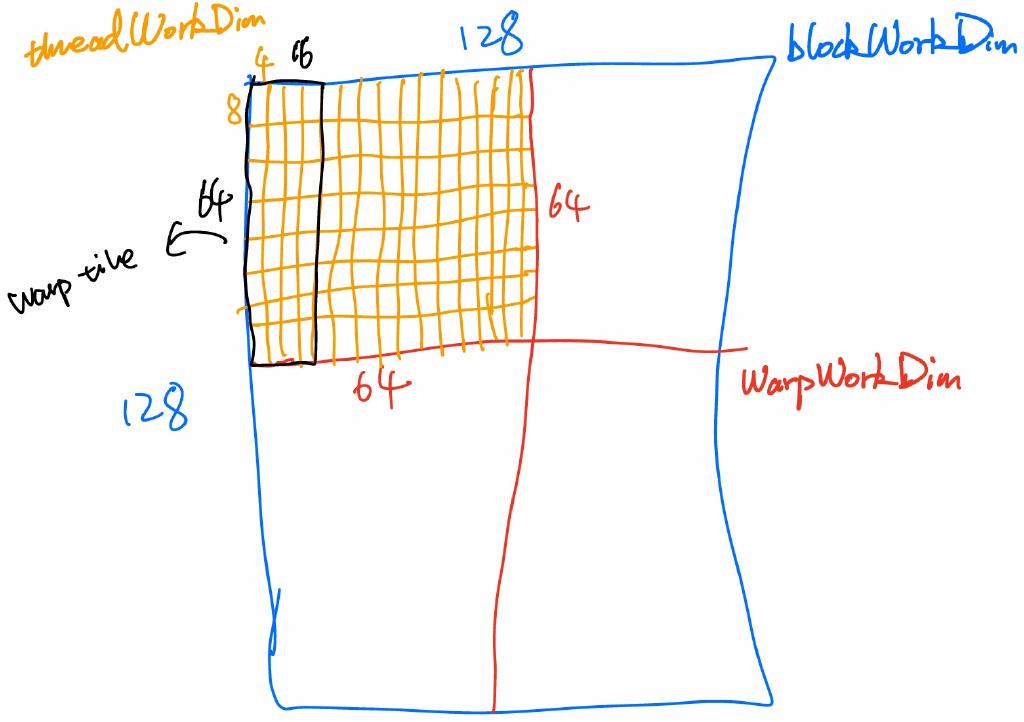 threadWorkDim
128
blockWorkDim
4
16
8
64
64
warp tile
64
WarpWorkDim
128